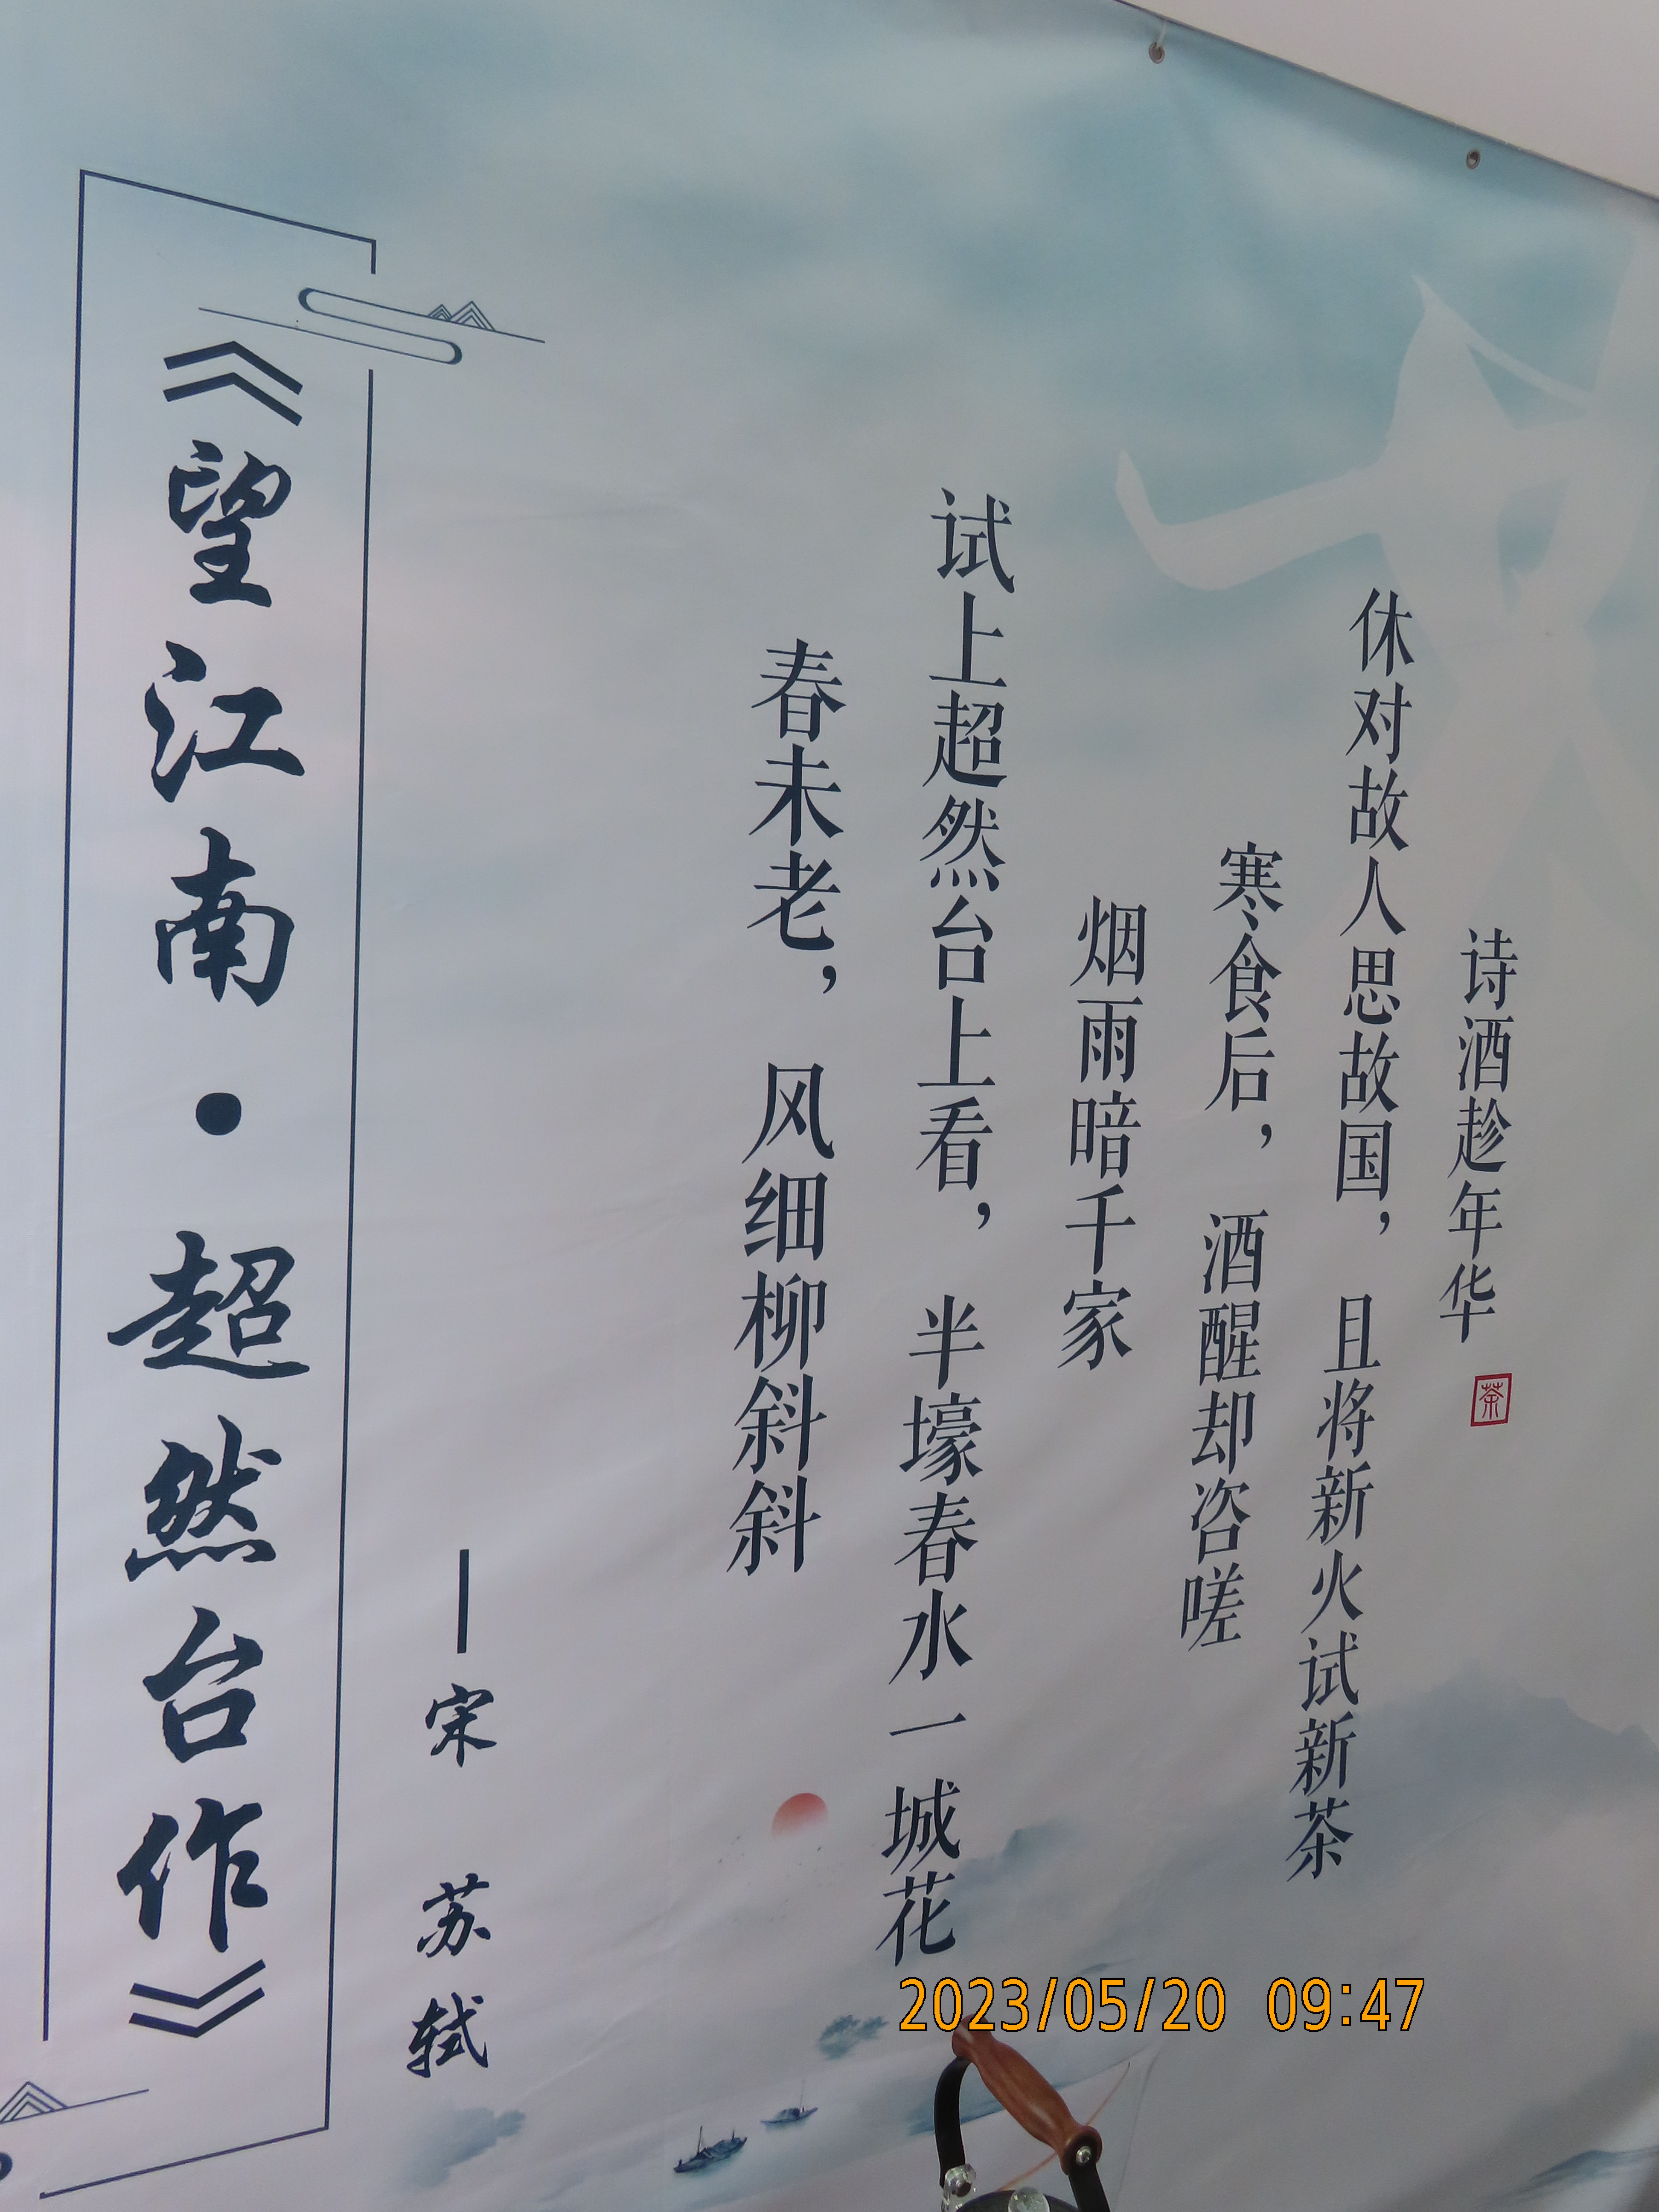 《望江南·超然台作》
—宋 苏轼
春未老，风细柳斜斜
试上超然台上看，半壕春水一城花
烟雨暗千家
寒食后，酒醒却咨嗟
休对故人思故国，且将新火试新茶
诗酒趁年华
茶
2023/05/20 09:47